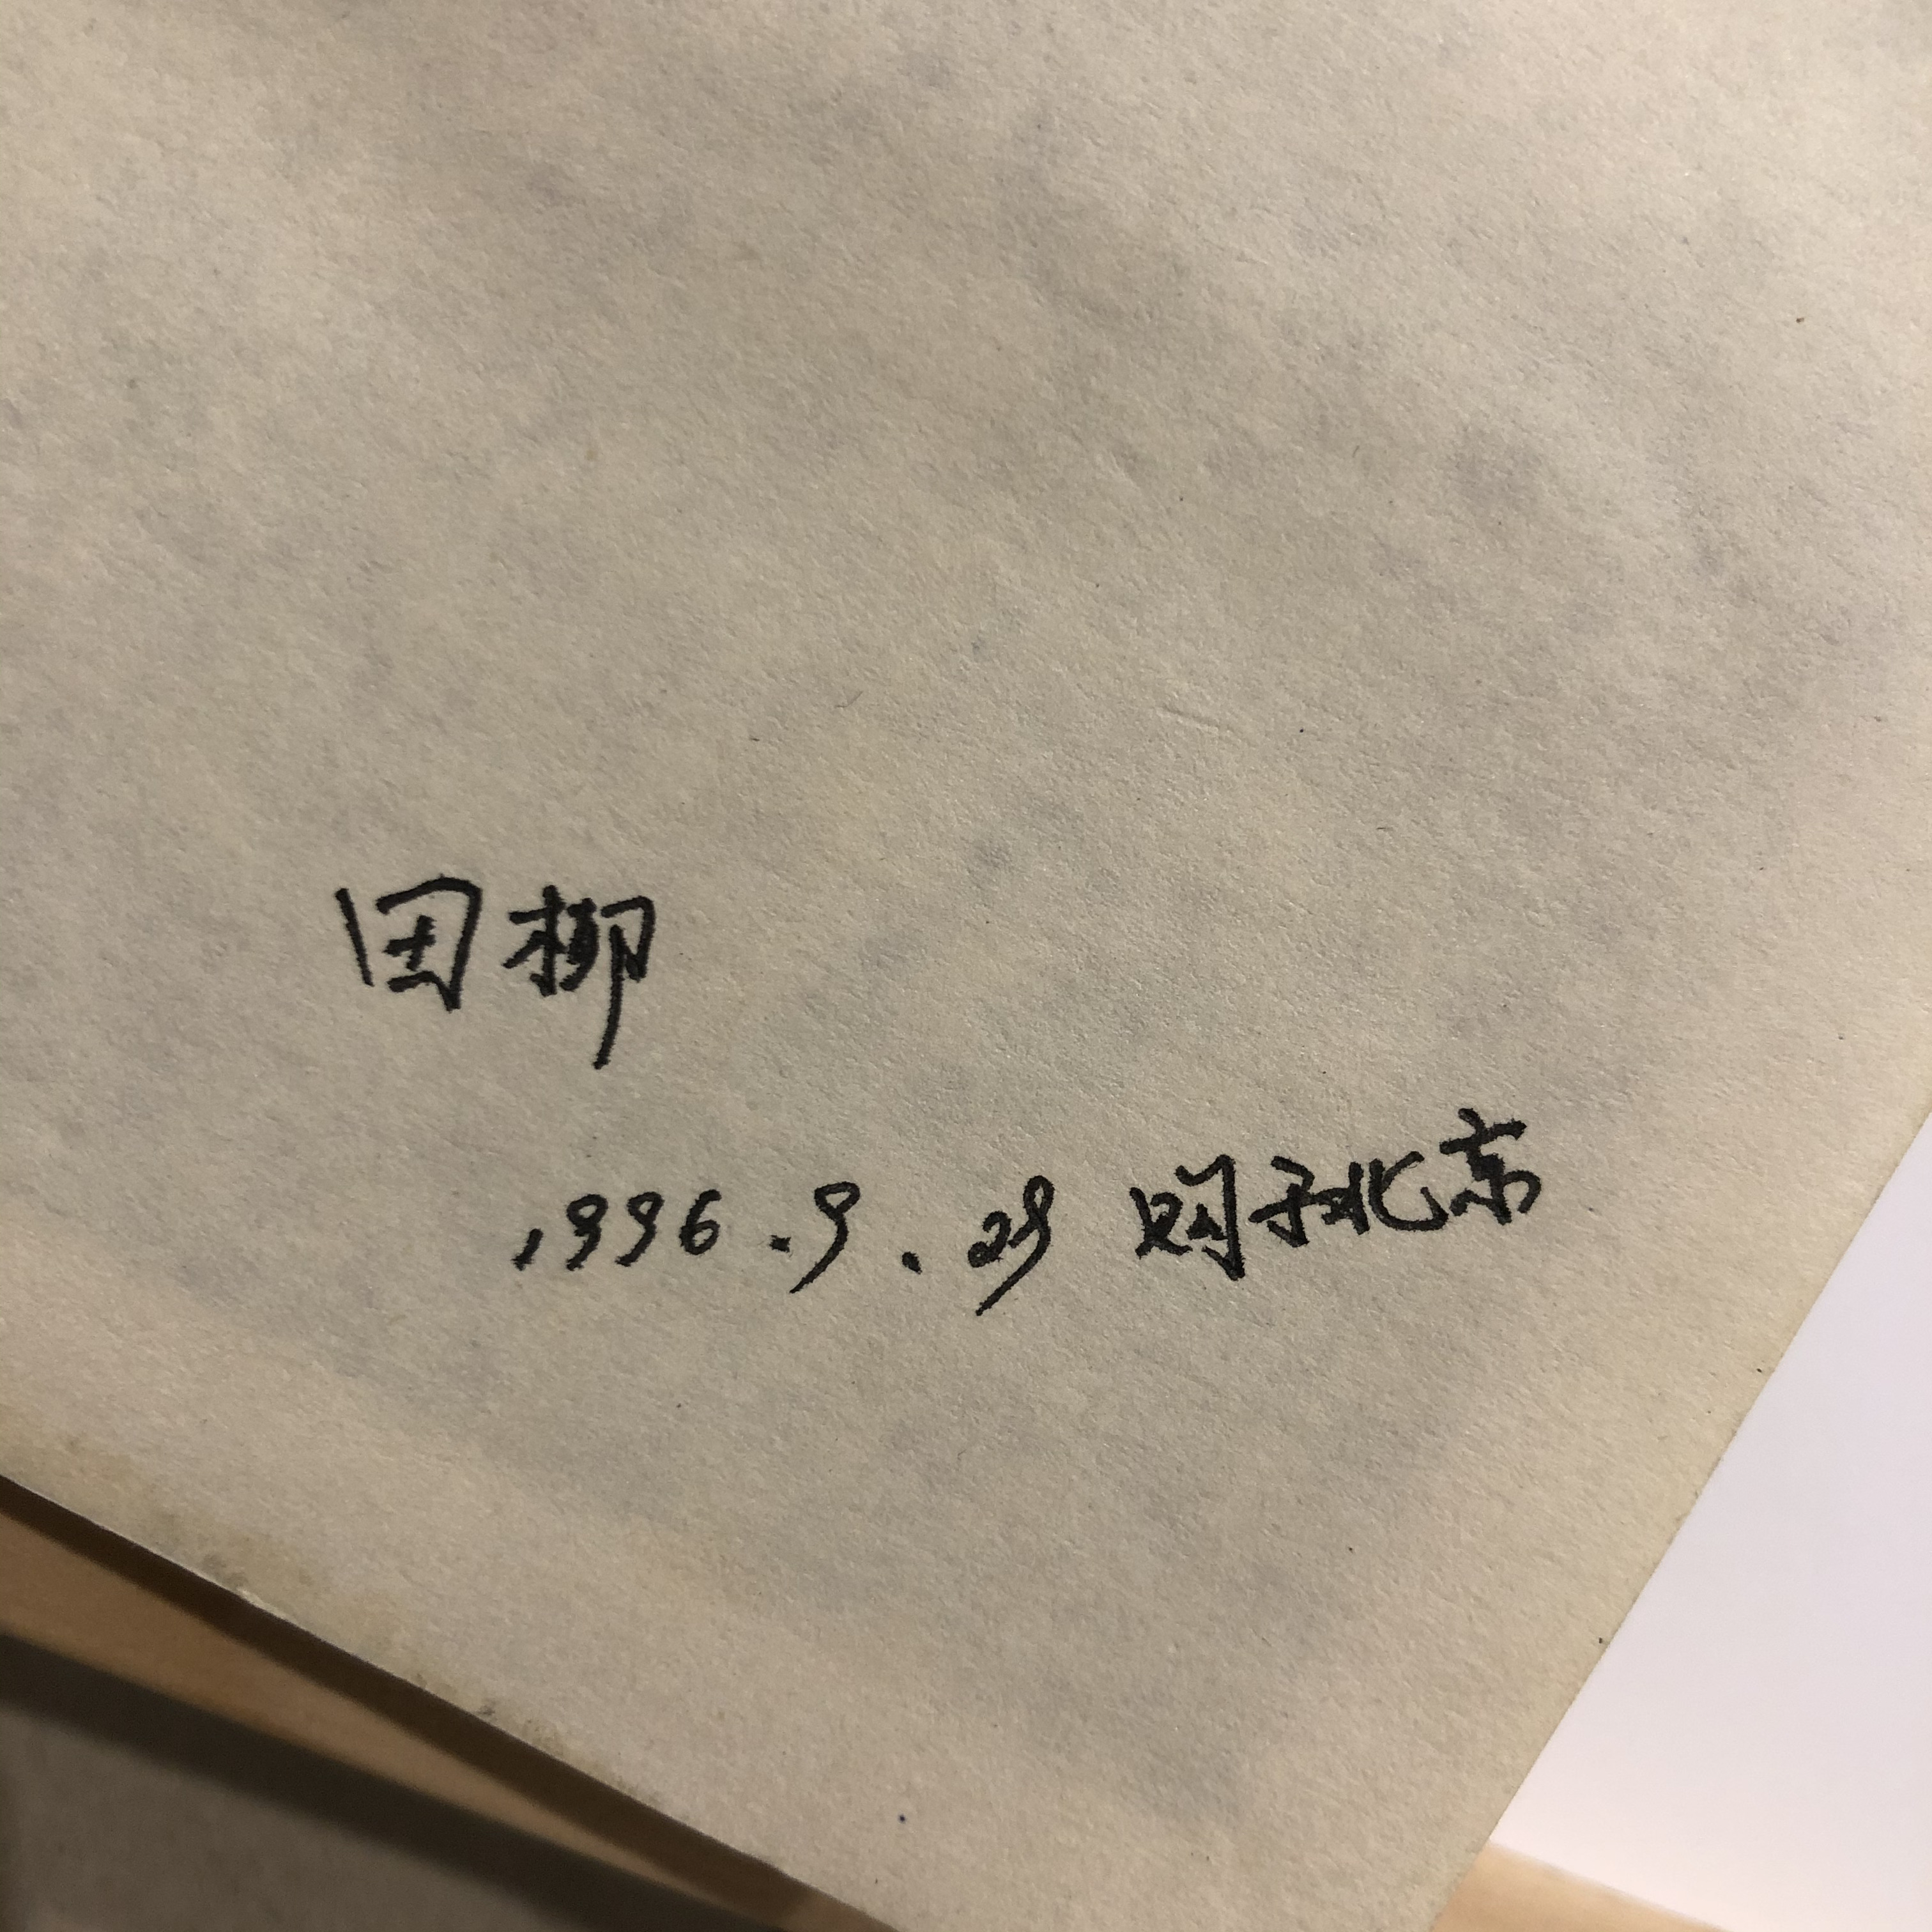 田柳
1996.9.29 购于北京